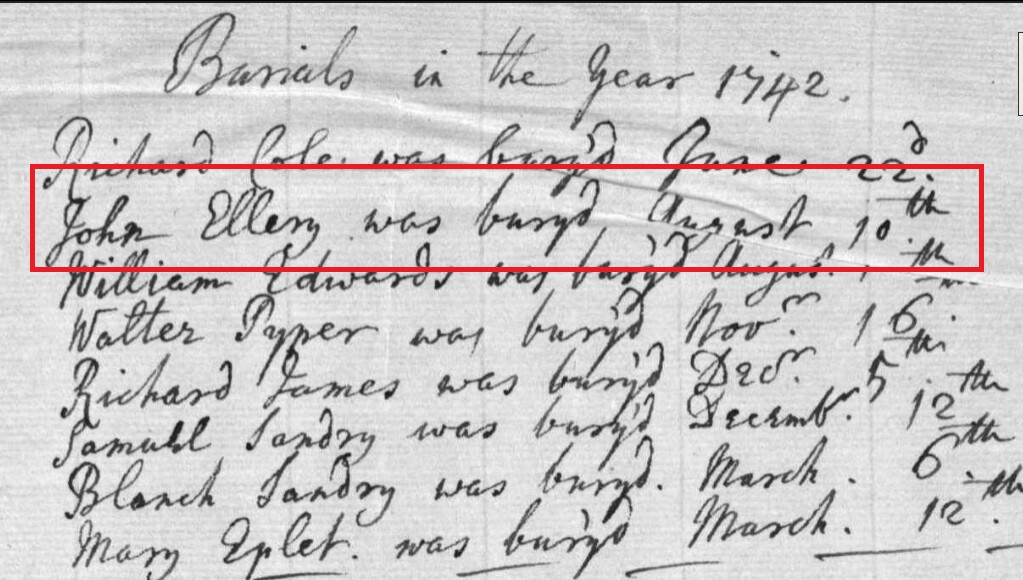 Burials in the Year 1742.
Richard Cole was bury'd June 22d.
John Ellery was buryd August 10th
William Edwards was bury'd Augus. th
Walter Pyper was bury'd Novr. 16th
Richard James was bury'd Decr. 5th
Samuell Sandry was bury'd Decembr. 12th
Blanch Sandry was buryd. March. 6th
Mary Eplet. was bury'd March. 12th